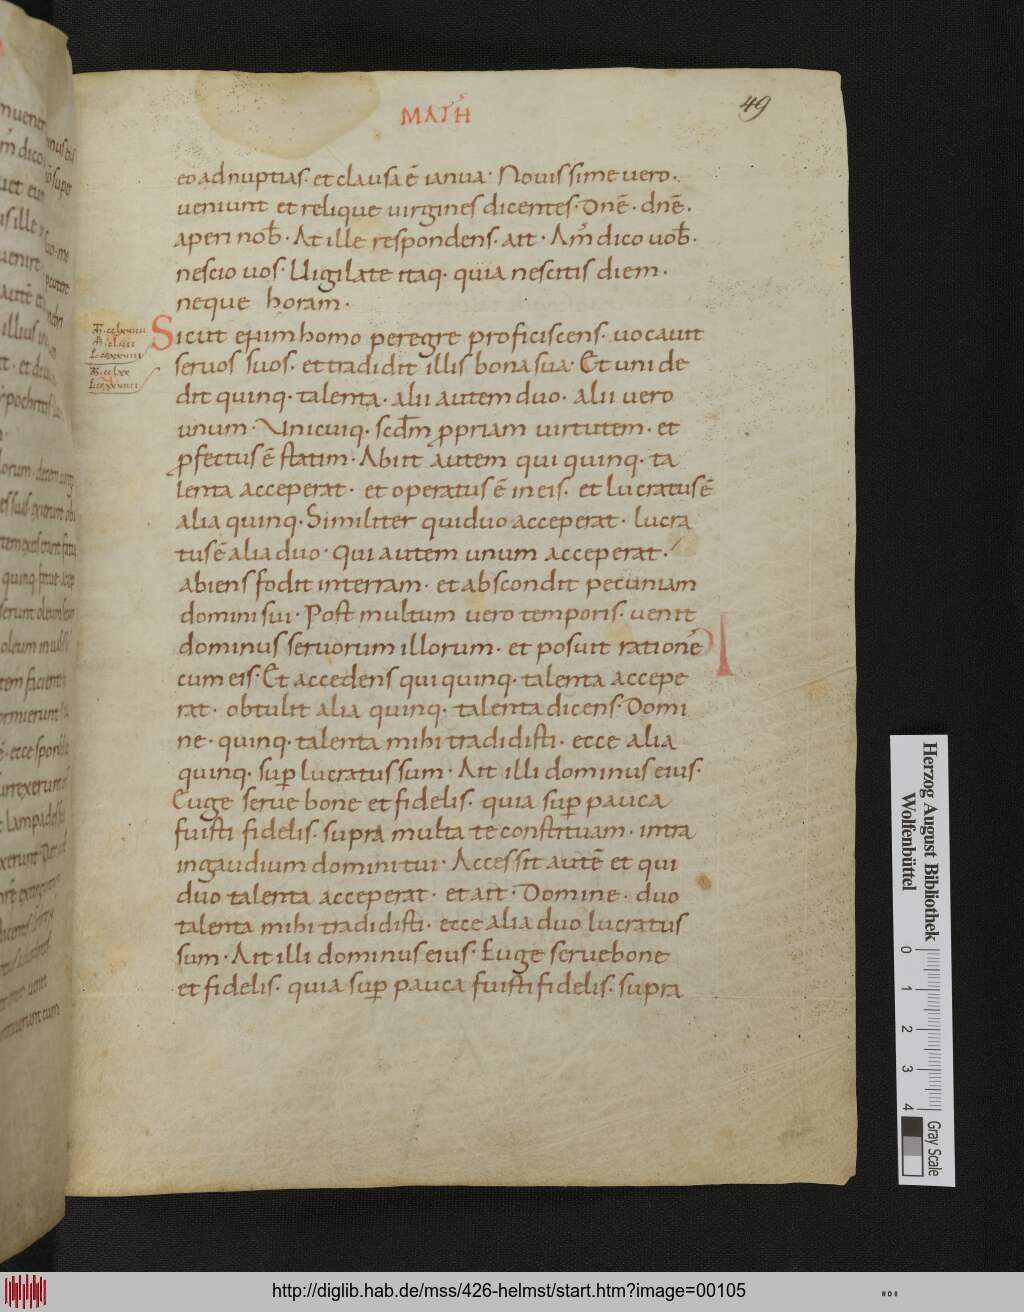 MATH
49
eo ad nuptias · et clausa ē ianua · Nouissime uero ·
ueniunt et relique uirgines dicentes · Dnē · dnē ·
aperi nob̄ · At ille respondens · ait · Am̄ dico uob̄ ·
nescio uos · Uigilate itaq· quia nescitis diem ·
neque horam ·
Sicut enim homo peregre proficiscens · uocauit
seruos suos · et tradidit illis bona sua · Et uni de
dit quinq· talenta · alii autem duo · alii uero
unum · Unicuiq· scd̄m ꝓpriam uirtutem · et
ꝓfectus ē statim · Abiit autem qui quinq· ta
lenta acceperat · et operatus ē in eis · et lucratus ē
alia quinq· Similiter qui duo acceperat · lucra
tus ē alia duo · Qui autem unum acceperat ·
abiens fodit in terram · et abscondit pecuniam
domini sui · Post multum uero temporis · uenit
dominus seruorum illorum · et posuit rationē
cum eis · Et accedens qui quinq· talenta accepe
rat · obtulit alia quinq· talenta dicens · Domi
ne · quinq· talenta mihi tradidisti · ecce alia
quinq· suꝑ lucratus sum · Ait illi dominus eius ·
Euge serue bone et fidelis · quia suꝑ pauca
fuisti fidelis · supra multa te constituam · intra
in gaudium domini tui · Accessit autē et qui
duo talenta acceperat · et ait · Domine · duo
talenta mihi tradidisti · ecce alia duo lucratus
sum · Ait illi dominus eius · Euge serue bone
et fidelis · quia suꝑ pauca fuisti fidelis · supra
Herzog August Bibliothek
Wolfenbüttel
0 1 2 3 4
Gray Scale
http://diglib.hab.de/mss/426-helmst/start.htm?image=00105